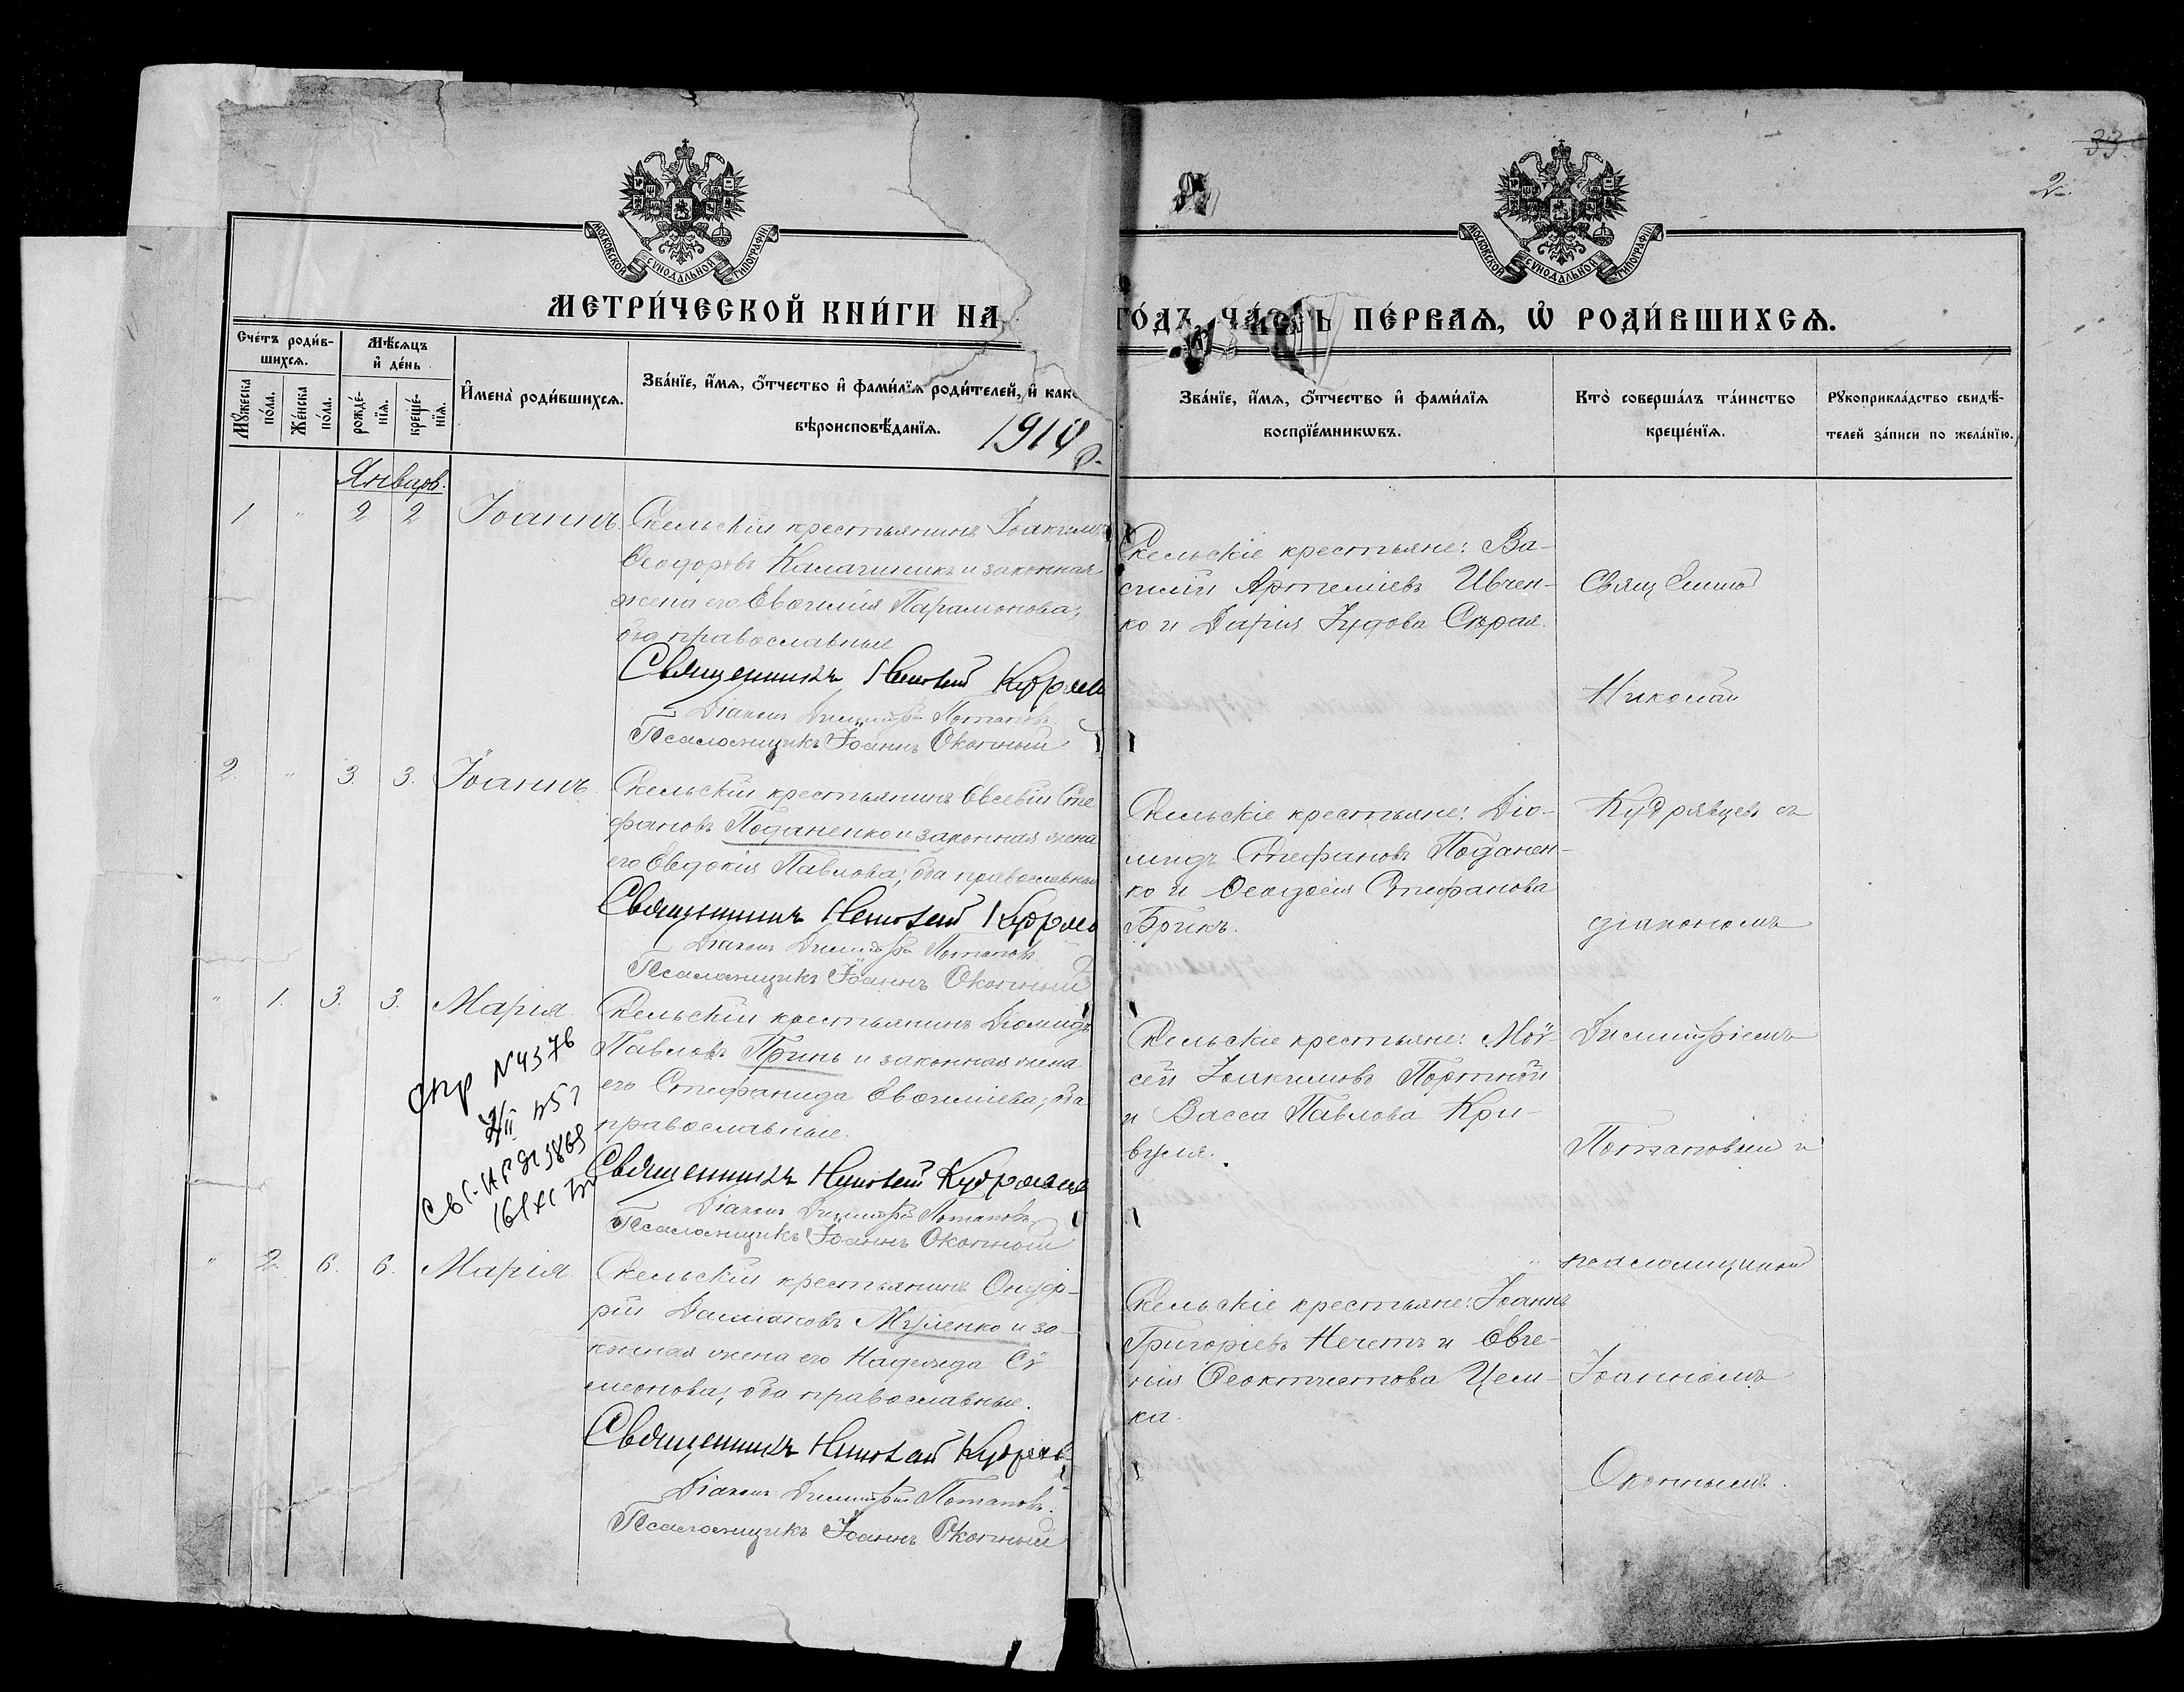 33.
2.
МОСКОВСКОЙ СѴНОДАЛЬНОЙ ТИПОГРАФІИ
МОСКОВСКОЙ СѴНОДАЛЬНОЙ ТИПОГРАФІИ
МЕТРИ́ЧЕСКОЙ КНИ́ГИ НА
ГО́ДЪ, ЧА́СТЬ ПЕ́РВАѦ, Ѡ҆ РОДИ́ВШИХСѦ.
Сче́тъ роди́в-
шихсѧ.
Мѣ́сѧцъ
и҆ де́нь
Мꙋ́жеска
по́ла.
Же́нска
по́ла.
рожде́-
нїѧ.
креще́-
нїѧ.
И҆мена̀ роди́вшихсѧ.
Зва́нїе, и҆́мѧ, ѻ҆́тчество и҆ фами́лїѧ роди́телей, и҆ как
вѣроисповѣ́данїѧ.
1914
Зва́нїе, и҆́мѧ, ѻ҆́тчество и҆ фами́лїѧ
воспрїе́мникѡвъ.
Кто̀ соверша́лъ та́инство
креще́нїѧ.
Рꙋкоприкла́дство свидѣ́-
телей за́писи по жела́нїю.
Январь.
1 " 2 2 Іоаннъ.
Скельскій крестьянинъ Іоакимъ
Ѳеодоровъ Калачникъ и законная
жена его Евѳимія Парамонова;
оба православные
Священникъ Николай Кудрявц
Діаконъ Димитрій Потаповъ.
Псаломщикъ Іоаннъ Окопный
Скельскіе крестьяне: Ва-
силій Артеміевъ Ивчен-
ко и Дарія Іудова Сѣрая.
2. " 3. 3. Іоаннъ.
Скельскій крестьянинъ Евсевій Сте
фановъ Поданенко и законная жена
его Евдокія Павлова; оба православные
Священникъ Николай Кудрявц
Діаконъ Димитрій Потаповъ.
Псаломщикъ Іоаннъ Окопный
Скельскіе крестьяне: Діо-
мидъ Стефановъ Поданен-
ко и Ѳеодосія Стефанова
Брикъ.
" 1. 3. 3. Марія.
Скельскій крестьянинъ Діомидъ
Павловъ Принь и законная жена
его Стефанида Евѳиміева; оба
православные.
Священникъ Николай Кудрявце
Діаконъ Димитрій Потаповъ.
Псаломщикъ Іоаннъ Окопный
Скельскіе крестьяне: Мої-
сей Іоакимовъ Портной
и Васса Павлова Кри-
вуля.
спр N 4376
" 2. 6. 6. Марія.
Скельскій крестьянинъ Онуф-
рій Даміановъ Муленко и за-
конная жена его Надежда Сѵ-
меонова; оба православные.
Священникъ Николай Кудрявц
Діаконъ Димитрій Потаповъ.
Псаломщикъ Іоаннъ Окопный
Скельскіе крестьяне: Іоаннъ
Григоріевъ Нечетъ и Евге-
нія Ѳеоктистова Цем-
ка.
Священникъ
Николай
Кудрявцевъ съ
діакономъ
Димитріемъ
Потаповымъ и
псаломщикомъ
Іоанномъ
Окопнымъ.